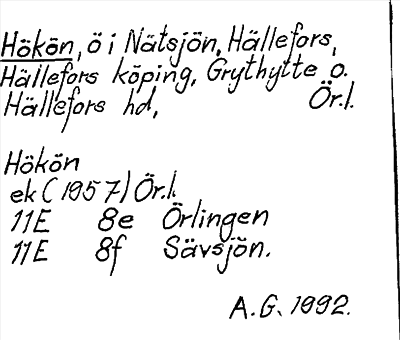 Hökön, ö i Nätsjön, Hällefors,
Hällefors köping, Grythytte o.
Hällefors hd, Ör.l.
Hökön
ek (1957) Ör.l.
11E 8e Örlingen
11E 8f Sävsjön.
A.G. 1992.